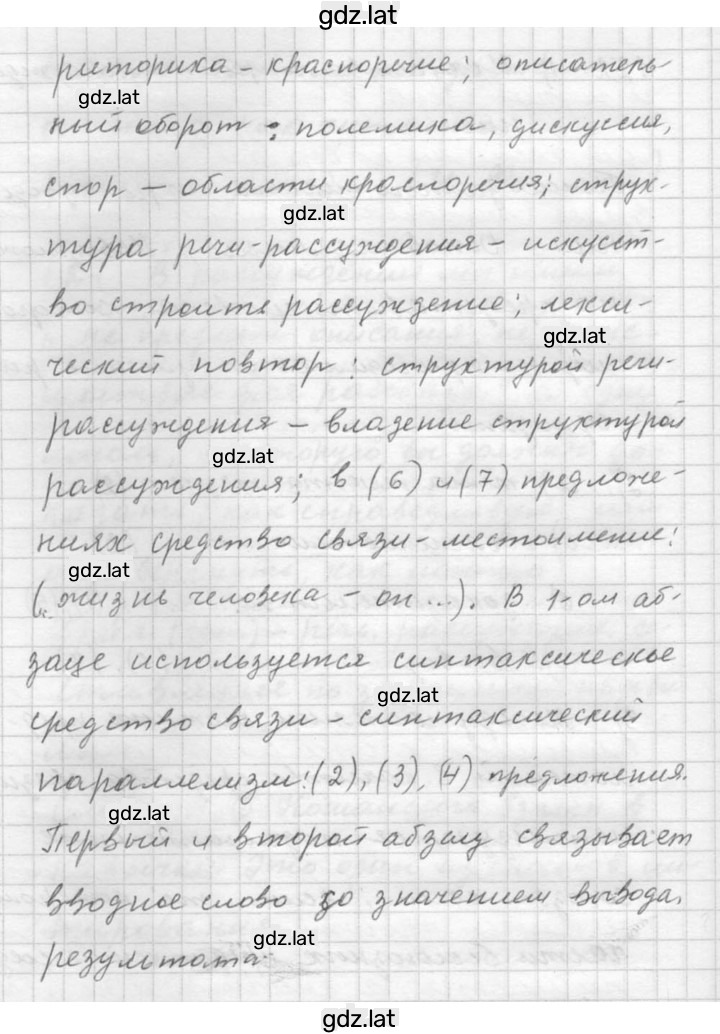 gdz.lat
риторика – красноречие; описатель-
gdz.lat
ный оборот: полемика, дискуссия,
спор — области красноречия; струк-
gdz.lat
тура речи-рассуждения – искусст-
во строить рассуждение; лекси-
gdz.lat
ческий повтор: структурой речи-
рассуждения – владение структурой
gdz.lat
рассуждения; в (6) и (7) предложе-
ниях средство связи – местоимение:
gdz.lat
(„жизнь человека – он ...). В 1-ом аб-
заце используется синтаксическое
gdz.lat
средство связи – синтаксический
параллелизм: (2), (3), (4) предложения.
gdz.lat
Первый и второй абзац связывает
вводное слово со значением вывода,
gdz.lat
результата.
gdz.lat